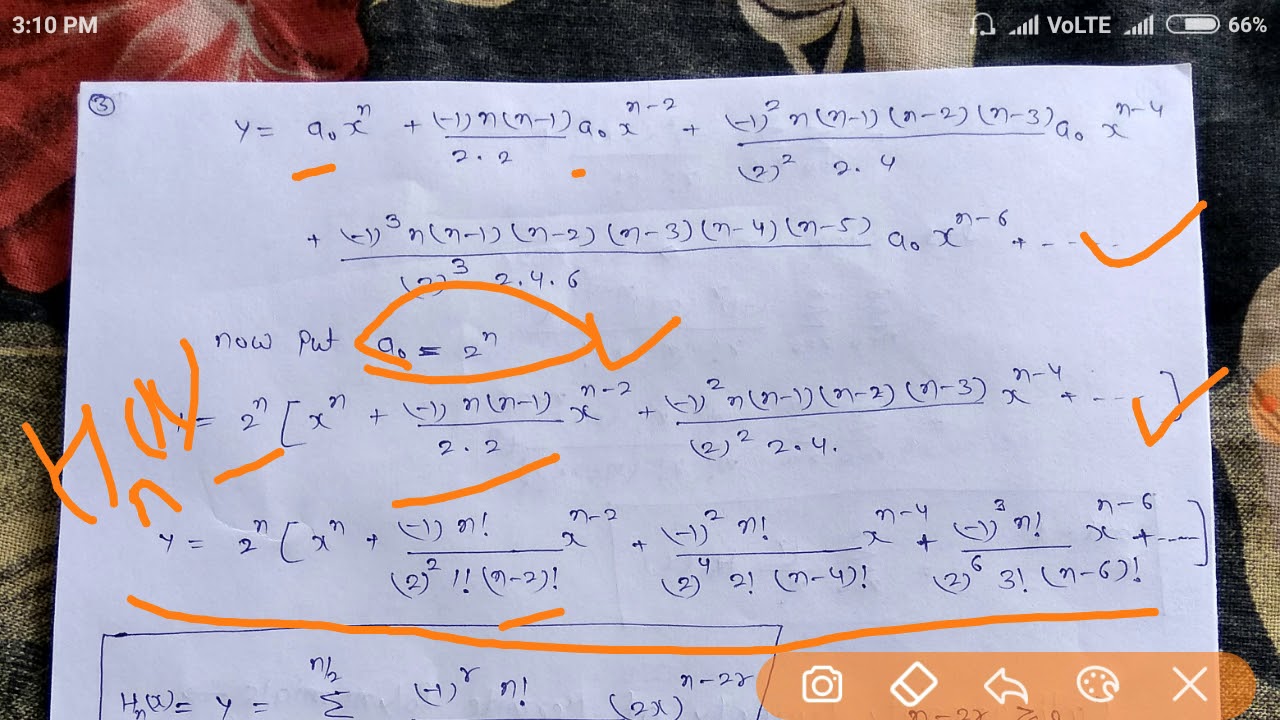 3:10 PM VoLTE 66%
③
y = a₀xⁿ + (-1)n(n-1)/2·2 a₀ xⁿ⁻² + (-1)² n(n-1)(n-2)(n-3)/(2)² 2·4 a₀ xⁿ⁻⁴
+ (-1)³ n(n-1)(n-2)(n-3)(n-4)(n-5)/(2)³ 2·4·6 a₀ xⁿ⁻⁶ + -----
now put a₀ = 2ⁿ
= 2ⁿ [xⁿ + (-1)n(n-1)/2·2 xⁿ⁻² + (-1)² n(n-1)(n-2)(n-3)/(2)² 2·4· xⁿ⁻⁴ + ---]
Hn(x)
y = 2ⁿ [xⁿ + (-1) n!/(2)² 1! (n-2)! xⁿ⁻² + (-1)² n!/(2)⁴ 2! (n-4)! xⁿ⁻⁴ + (-1)³ n!/(2)⁶ 3! (n-6)! xⁿ⁻⁶ + ----]
Hn(x) = y = Σ n/2 (-1)ʳ n! (2x)ⁿ⁻²ʳ